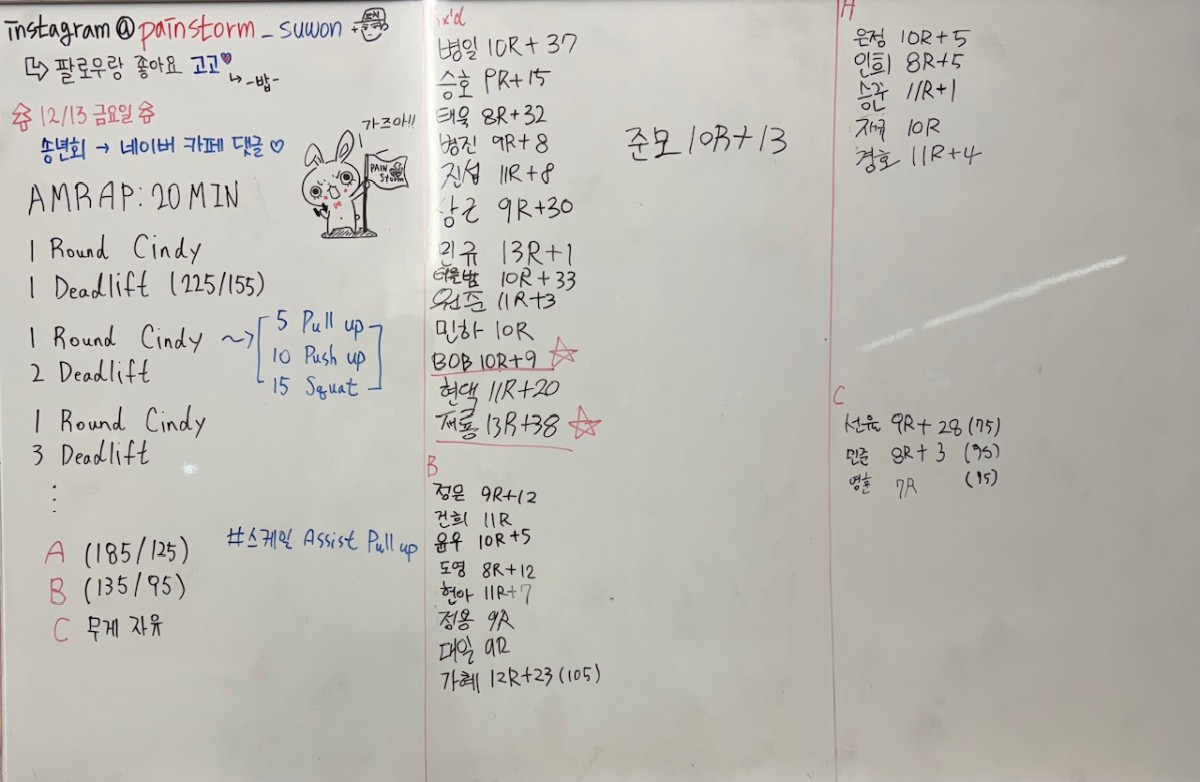 instagram@painstorm_suwon
팔로우랑 좋아요 고고
-밥-
12/13 금요일
송년회 → 네이버 카페 댓글 ♡
가즈아!!
PAIN
Storm
AMRAP: 20 MIN
1 Round Cindy
1 Deadlift (225/155)
1 Round Cindy
5 Pull up
10 Push up
15 Squat
2 Deadlift
1 Round Cindy
3 Deadlift
A (185/125)
B (135/95)
C 무게 자유
#스케일 Assist Pull up
x'd
병일 10R+37
승호 9R+15
태욱 8R+32
병진 9R+8
진섭 11R+8
상근 9R+30
민규 13R+1
10R+33
원준 11R+3
민하 10R
BOB 10R+9
현택 11R+20
재룡 13R+38
준모 10R+13
B
정은 9R+12
건희 11R
윤우 10R+5
도영 8R+12
현아 11R+7
정용 9R
대일 9R
가혜 12R+23 (105)
A
은정 10R+5
인희 8R+5
11R+1
10R
경호 11R+4
C
선유 9R+28 (75)
민준 8R+3 (95)
영훈 7R (95)